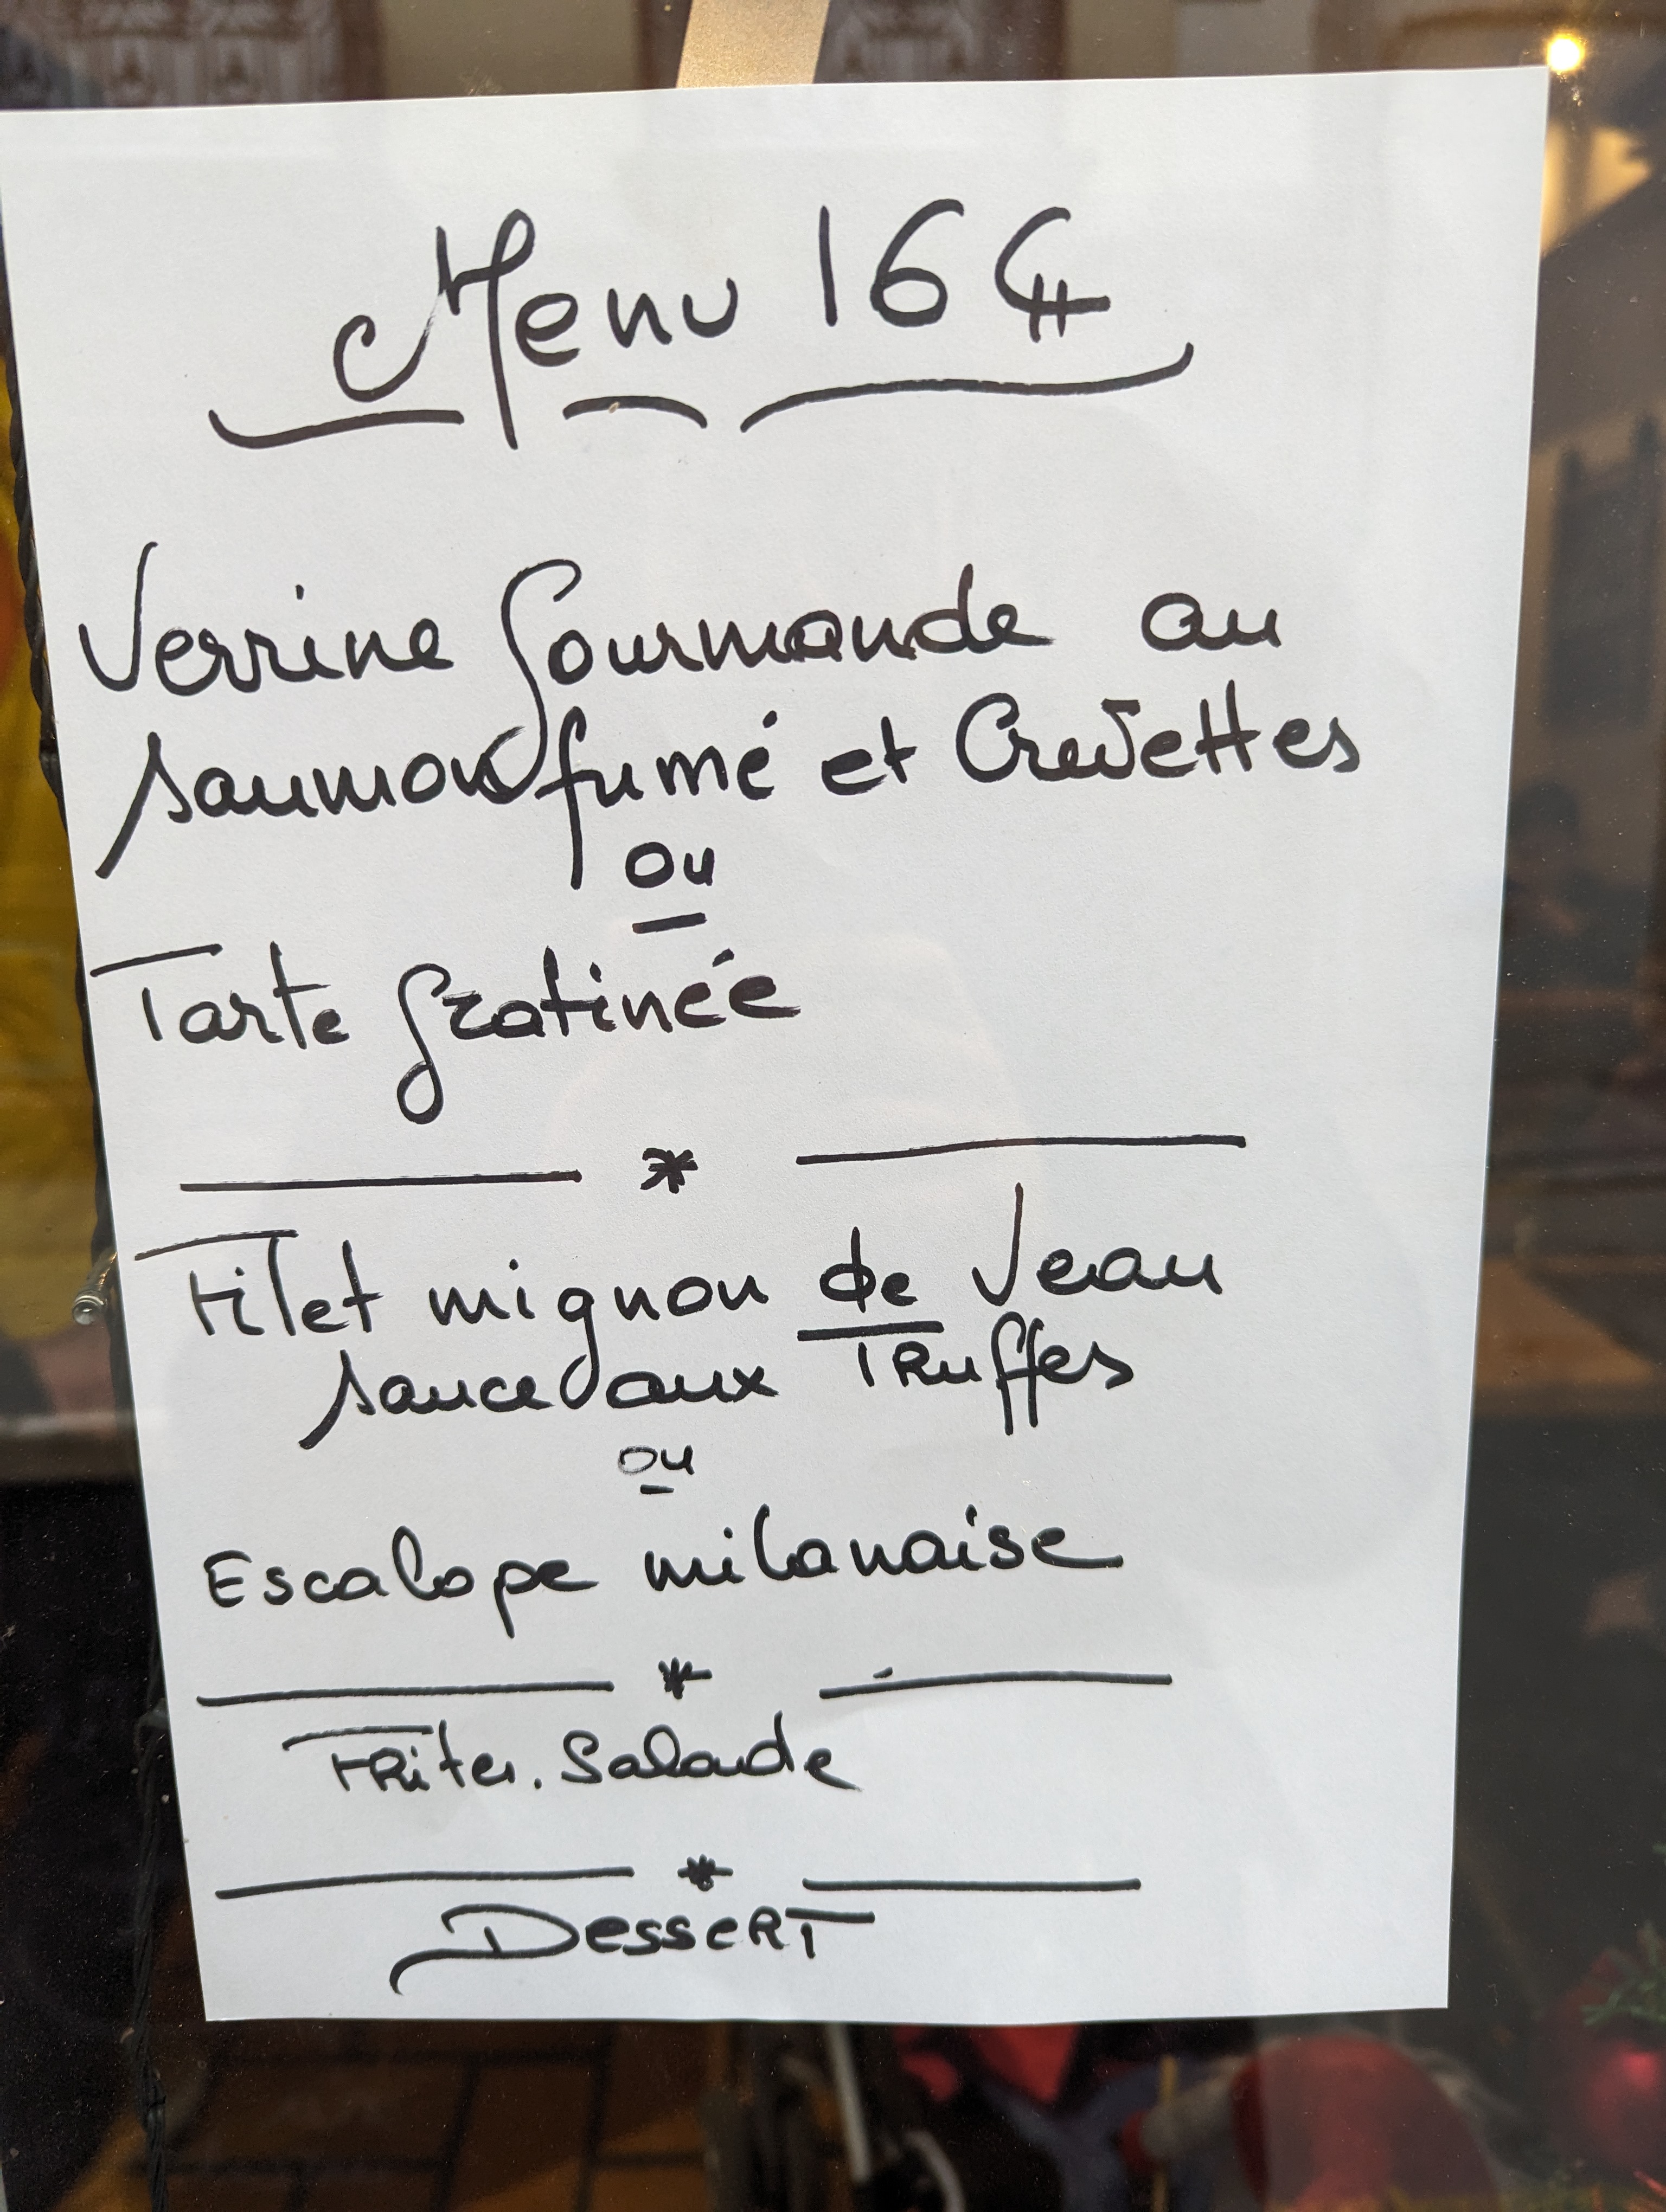 Menu 16 €
Verrine Gourmande au
saumon fumé et Crevettes
ou
Tarte gratinée
*
Filet mignon de Veau
sauce aux Truffes
ou
Escalope milanaise
*
Frites. Salade
*
Dessert